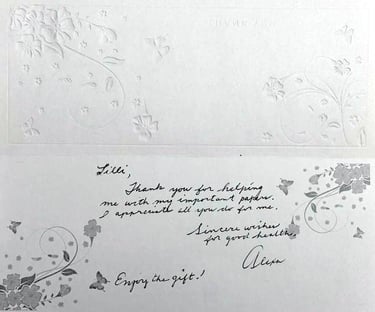 Lilli,
Thank you for helping
me with my important papers.
I appreciate all you do for me.
Sincere wishes
for good health,
Alexa
Enjoy the gift!